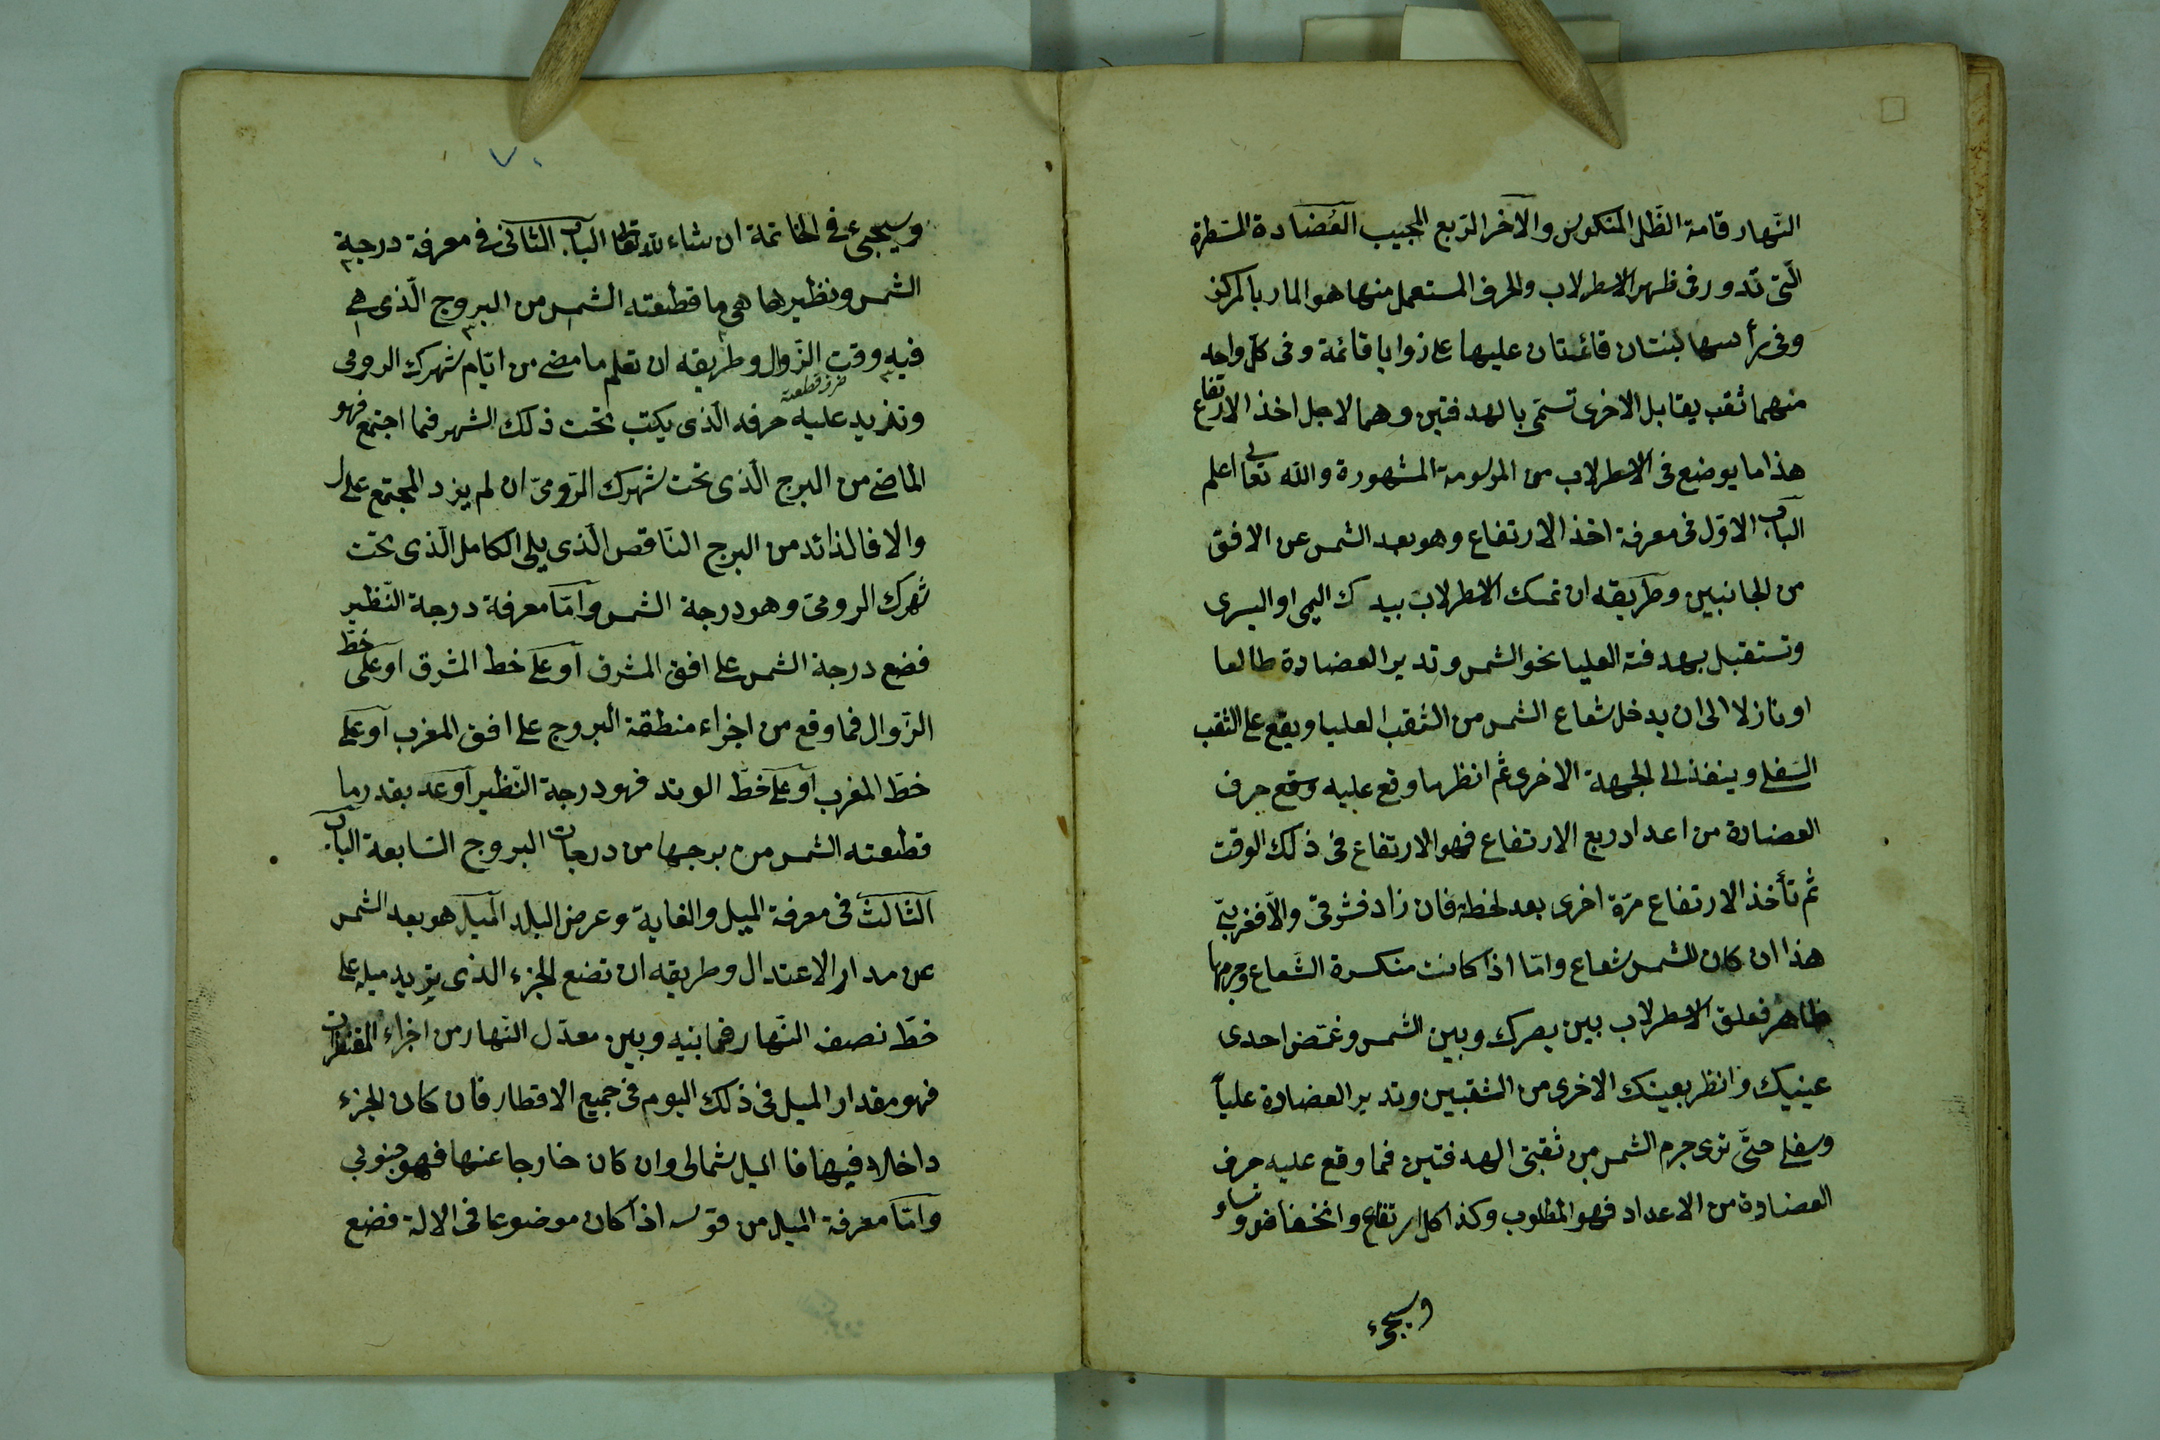 النّهار قامة الظّل المنكوس والآخر الرّبع المجيب العُضادة المسَطرة
الّتى تدور فى ظهر الاسطرلاب والحرف المستعمل منها هو المار بالمركز
وفى رأسها لبنتان قائمتان عليها على زوايا قائمة وفى كلّ واحد
منهما ثقب يقابل الاخرى تسمّى بالهدفتين وهما لاجل اخذ الارتفاع
هذا ما يوضع فى الاسطرلاب من المرسومة المشهورة والله تعالى اعلم
الباب الاوّل فى معرفة اخذ الارتفاع وهو بعد الشمس عن الافق
من الجانبين وطريقه ان تمسك الاسطرلاب بيدك اليمى او اليسرى
وتستقبل بهدفته العليا نحو الشمس وتدير العضادة طالعا
او نازلا الى ان يدخل شعاع الشمس من الثقب العليا ويقع على الثقب
السّفلى وينفذ الى الجهة الاخرى ثم انظر ما وقع عليه وقع حرف
العضادة من اعداد ربع الارتفاع فهو الارتفاع فى ذلك الوقت
ثم تأخذ الارتفاع مرّة اخرى بعد لحظة فان زاد فشرقىّ والاّ فغربىّ
هذا ان كان للشمس شعاع وامّا اذا كانت منكسرة الشّعاع وجرمها
ظاهر فعلق الاسطرلاب بين بصرك وبين الشمس وغمّض احدى
عينيك وانظر بعينك الاخرى من الثقبين وتدير العضادة علياً
وسفلى حتّى ترى جرم الشمس من ثقبتى الهدفتين فما وقع عليه حرف
العضادة من الاعداد فهو المطلوب وكذا كل ارتفاع وانخفاض و
وسيجىء
٧٠
وسيجىء فى الخاتمة ان شاء الله تعالى الباب الثانى فى معرفة درجة
الشمس ونظيرها هى ما قطعته الشمس من البروج الّذى هى
فيه وقت الزّوال وطريقه ان تعلم ما مضى من ايّام شهرك الرومى
وتزيد عليه حرفه الّذى يكتب تحت ذلك الشهر فما اجتمع فهو
الماضى من البرج الّذى تحت شهرك الرّومىّ ان لم يزد المجتمع على ل
والا فالزائد من البرج النّاقص الّذى يلى الكامل الّذى تحت
شهرك الرومىّ وهو درجة الشمس وامّا معرفة درجة النّظير
فضع درجة الشمس على افق المشرق او على خط المشرق او على خطّ
الزّوال فما وقع من اجزاء منطقة البروج على افق المغرب او على
خطّ المغرب او على خطّ الوتد فهو درجة النّظير او عد بقدر ما
قطعته الشمس من برجها من درجات البروج السّابعة الباب
الثالث فى معرفة الميل والغاية وعرض البلد الميل هو بعد الشمس
عن مدار الاعتدال وطريقه ان تضع الجزء الذى يزيد ميله على
خطّ نصف النّهار فما بينه وبين معدّل النّهار من اجزاء المقنطرات
فهو مقدار الميل فى ذلك اليوم فى جميع الاقطار فان كان الجزء
داخلا فيها فالميل شمالى وان كان خارجا عنها فهو جنوبى
وامّا معرفة الميل من قوسه اذا كان موضوعا فى الالة فضع